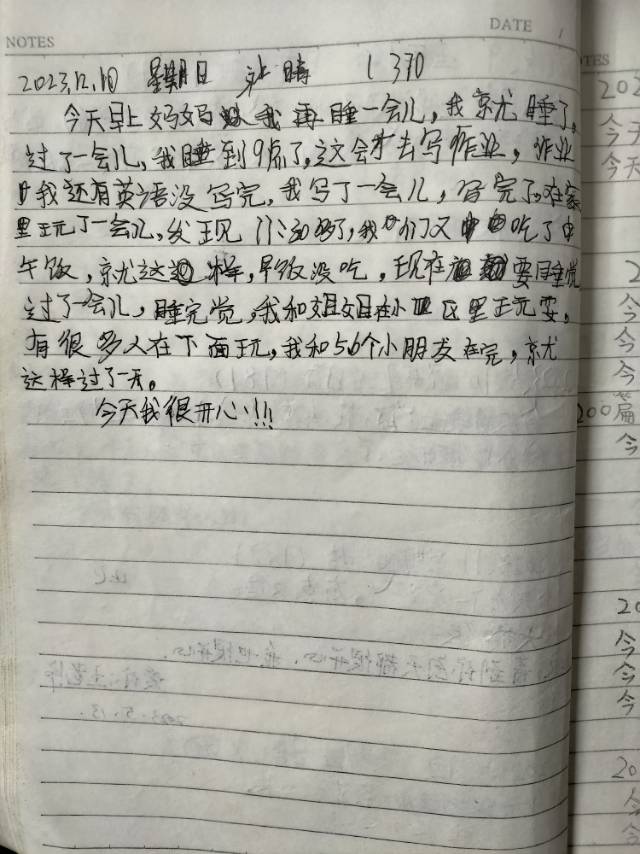 NOTES DATE
2023,12,10 星期日 晴 (370
今天早上妈妈 我再睡一会儿,我就睡了,
过了一会儿,我睡到9点了,这会才去写作业,作业
我还有英语没写完,我写了一会儿,写完了。在家
里玩了一会儿,发现 我们又 吃了中
午饭,就这 样,早饭没吃,现在 要睡觉
过了一会儿,睡完觉,我和姐姐在小 区里玩耍。
有很多人在下面玩,我和5.6个小朋友在完,就
这样过了一天。
今天我很开心!!!
TES
202
今天
今天
2
今
今
今
200篇
今
20
今
今
今
20
今
今